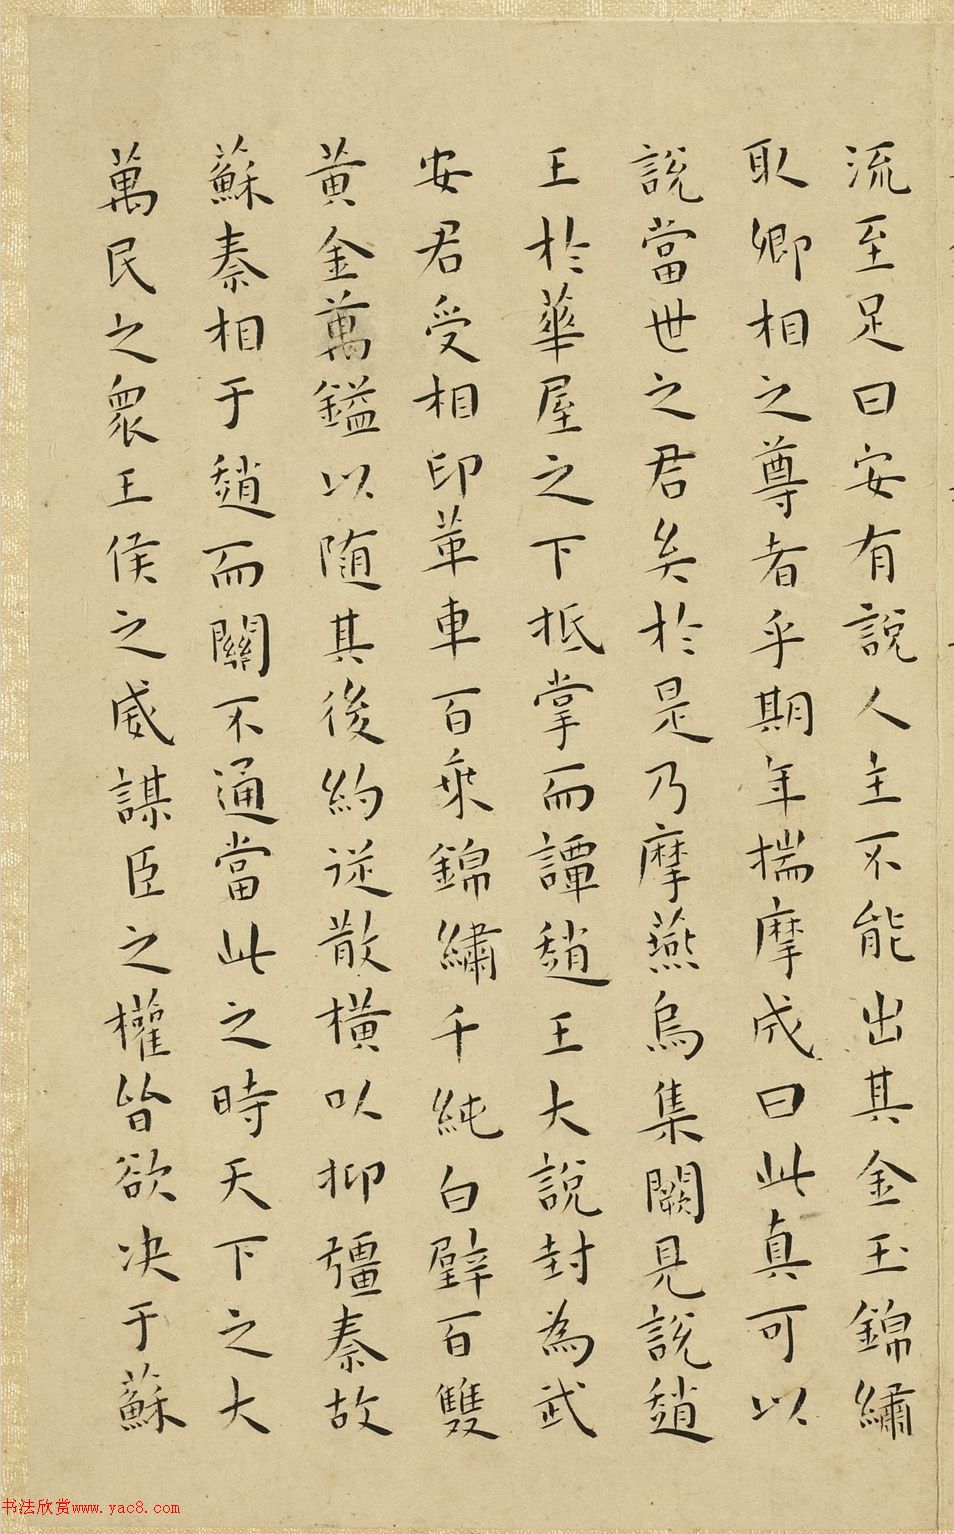 流至足曰安有說人主不能出其金玉錦繡
取卿相之尊者乎期年揣摩成曰此真可以
說當世之君矣於是乃摩燕烏集闕見說趙
王於華屋之下抵掌而譚趙王大說封為武
安君受相印革車百乘錦繡千純白璧百雙
黃金萬鎰以随其後約從散橫以抑彊秦故
蘇秦相于趙而關不通當此之時天下之大
萬民之眾王侯之威謀臣之權皆欲决于蘇
书法欣赏www.yac8.com